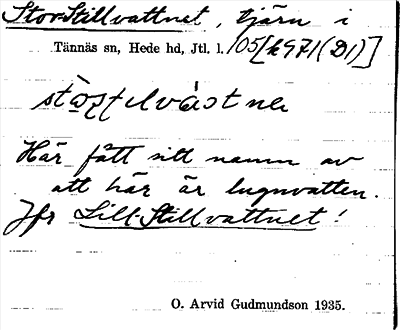 Stor-Stillvattnet, tjärn i
Tännäs sn, Hede hd, Jtl. l. 105[k971(D1)]
Har fått sitt namn av
att här är lugnvatten.
Jfr Lill-Stillvattnet!
O. Arvid Gudmundson 1935.